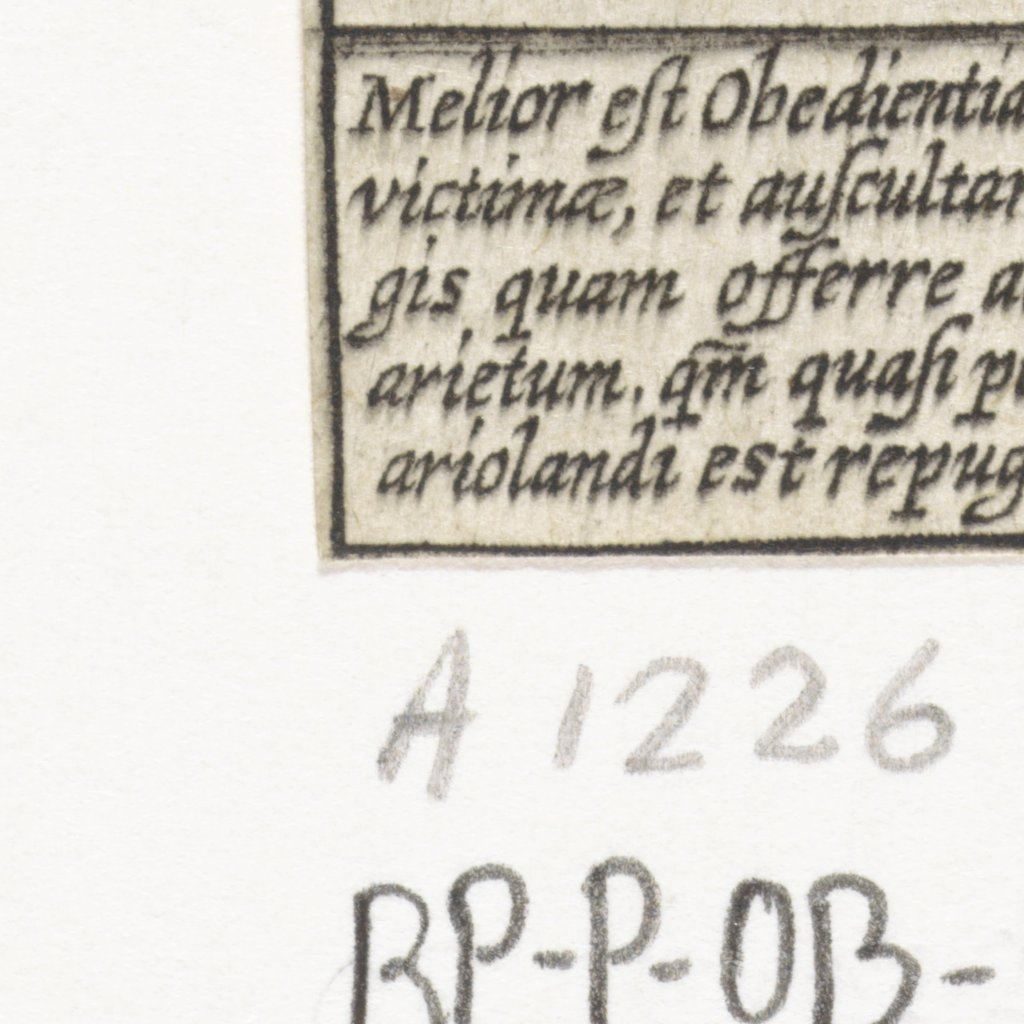 Melior eſt Obedientia
victimæ, et auſcultar
gis quam offerre a
arietum. qm̄ quaſi p
ariolandi est repug
A 1226
RP-P-OB-